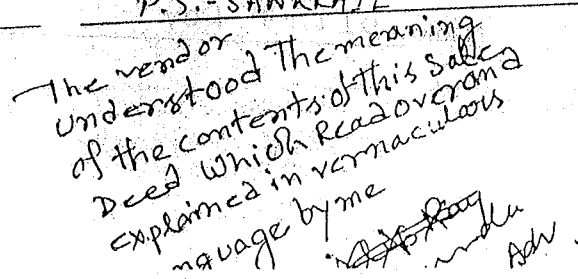 P.S.-SANKRAIL
The vendor
understood The meaning
of the contents of this Sale
Deed Which Read over and
explained in vernaculars
nguage by me
Adv.